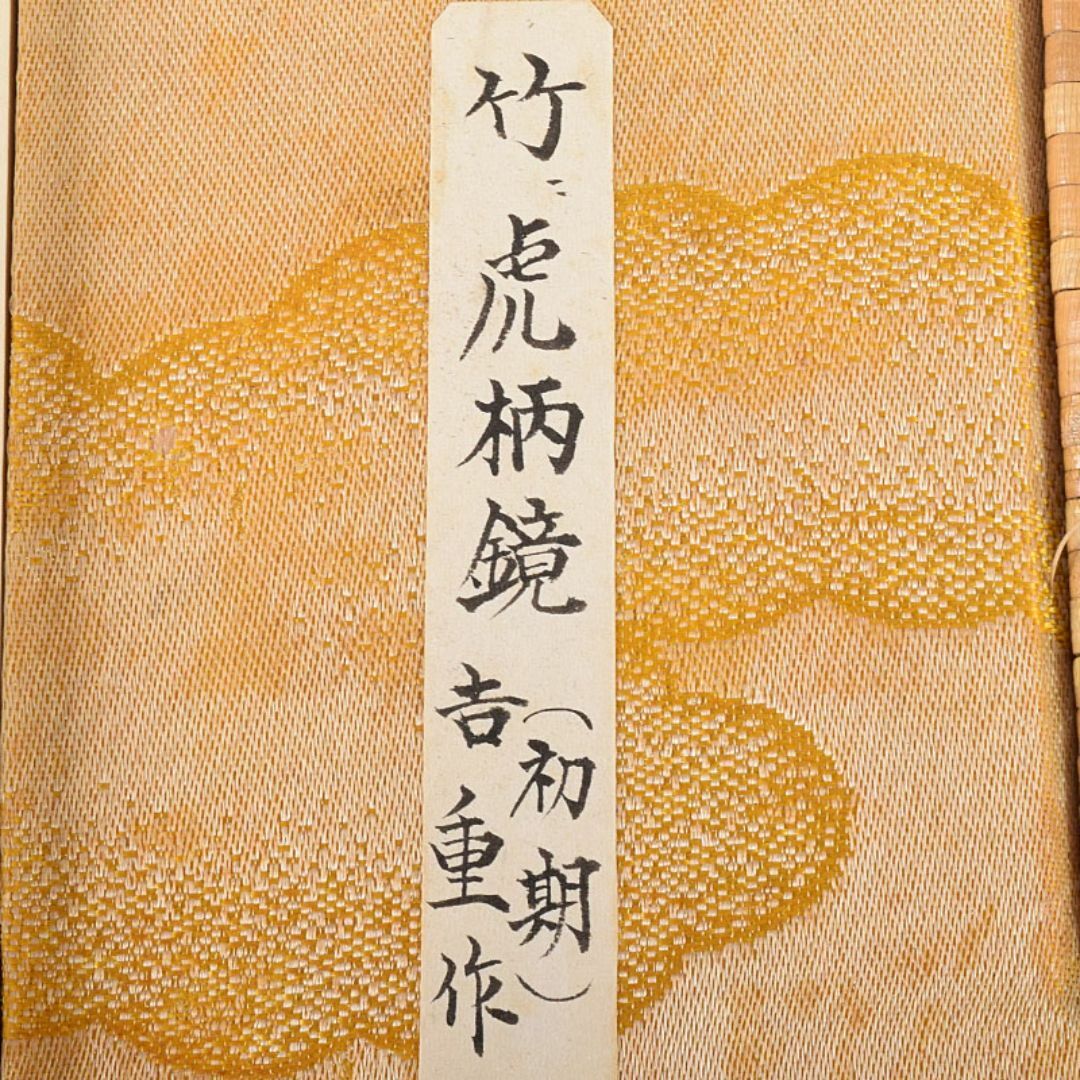 竹ニ虎柄鏡
(初期)
吉重作